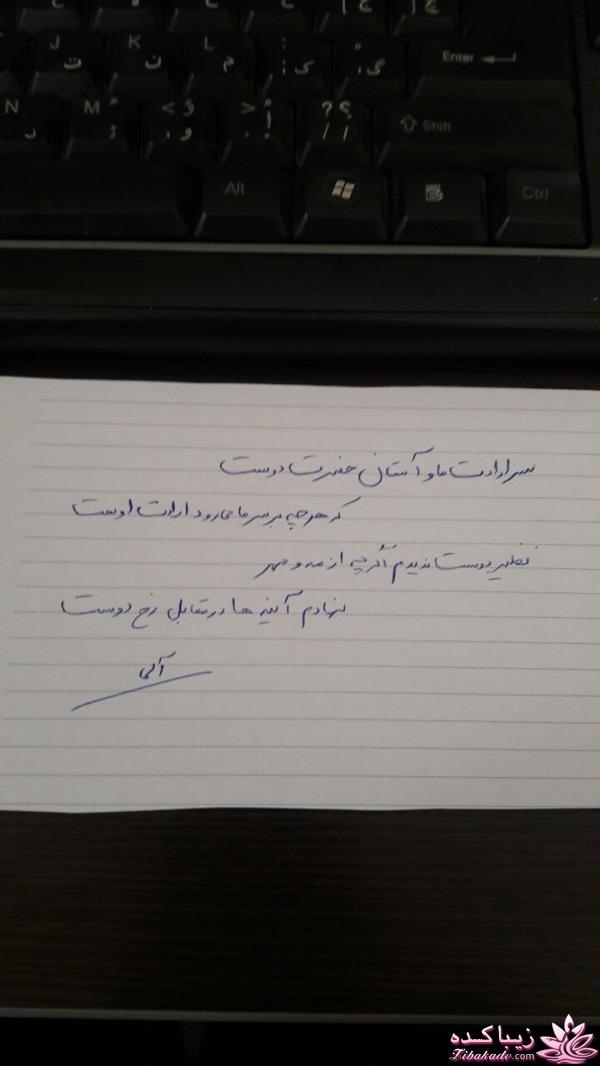 J ت
K ن
L م
: ; ک
" گ
Enter
N د
M ئ
< , و
> .
? / ؟
Shift
Alt
Ctrl
سر ارادت ما و آستان حضرت دوست
که هرچه بر سر ما می‌رود ارادت اوست
نظیر دوست ندیدم اگرچه از مه و مهر
نهادم آینه ها در مقابل رخ دوست
زیباکده
Zibakade.com